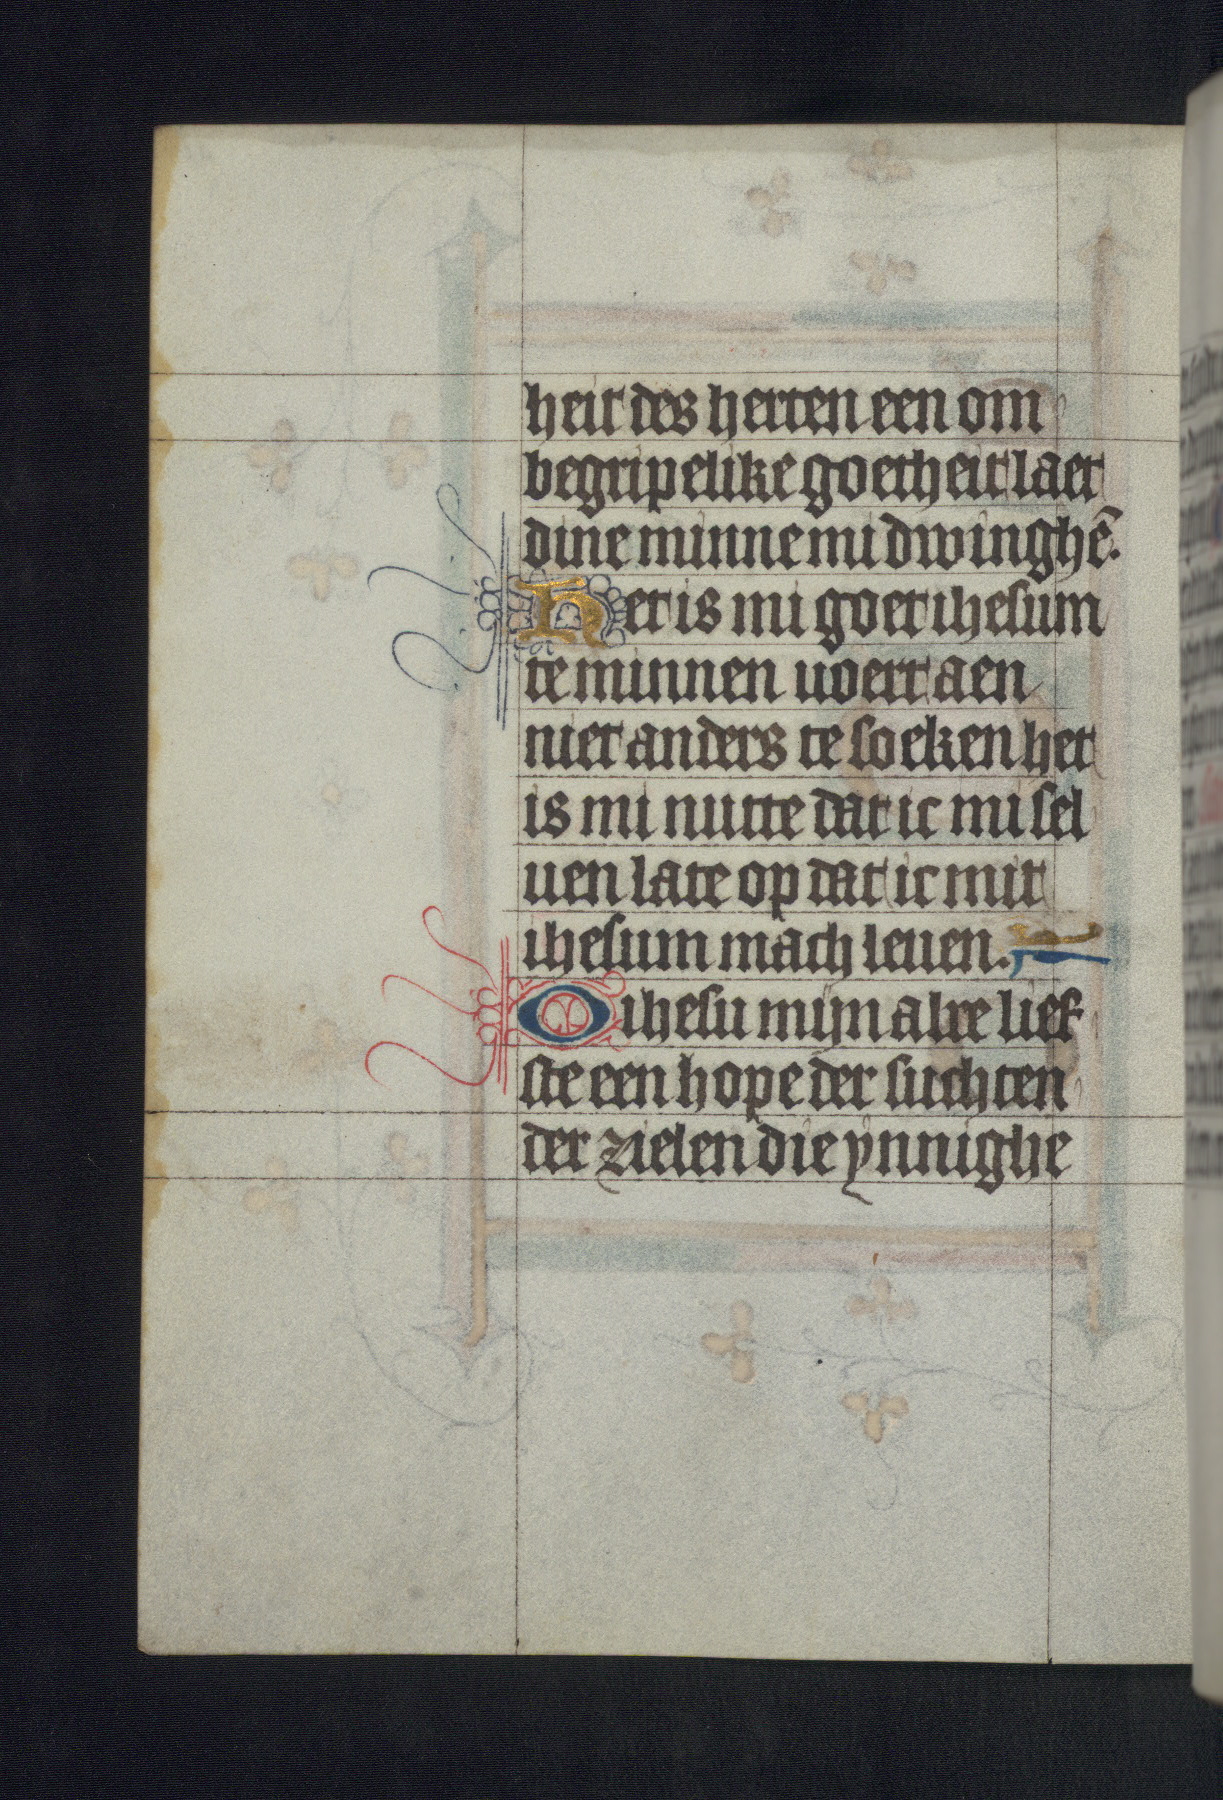 heit des herten een om
begripelike goetheit laet
dine minne mi dwinghē.
Het is mi goet ihesum
te minnen uoert aen
niet anders te soeken het
is mi nutte dat ic mi sel
uen late op dat ic mit
ihesum mach leuen.
O ihesu mijn alre lief
ste een hope der suchten
der zielen die ynnighe